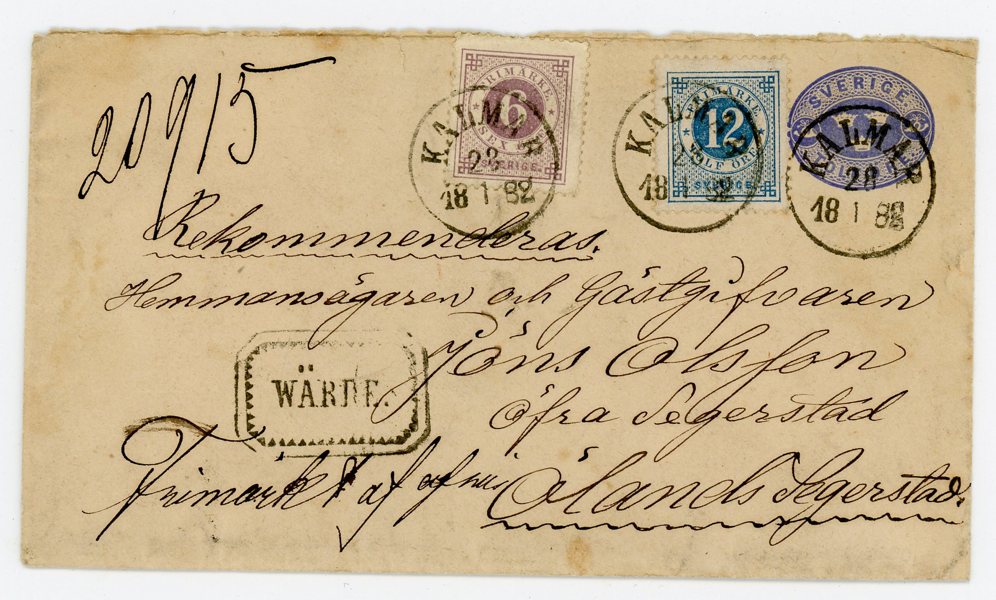 20915
FRIMÄRKE
6
SEX
SVERIGE.
KALMAR
28
18 1 82
FRIMÄRKE
12
TOLF ÖRE
SVERIGE
KALMAR
18 82
SVERIGE.
KALMAR
28
18 1 82
Rekommenderas.
Hemmansägaren och Gästgifvaren
Jöns Olsson
WÄRDE.
öfra Segerstad
Frimärkt af
Ölands Segerstad.